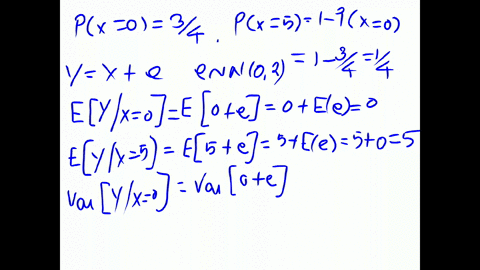 P(x=0)=3/4 . P(x=5)=1-P(x=0)
=1-3/4=1/4
Y=x+e e~N(0,2)
E[Y/x=0]=E[0+e]=0+E(e)=0
E[Y/x=5)=E[5+e]=5+E(e)=5+0=5
Var[Y/x=0]=Var[0+e]